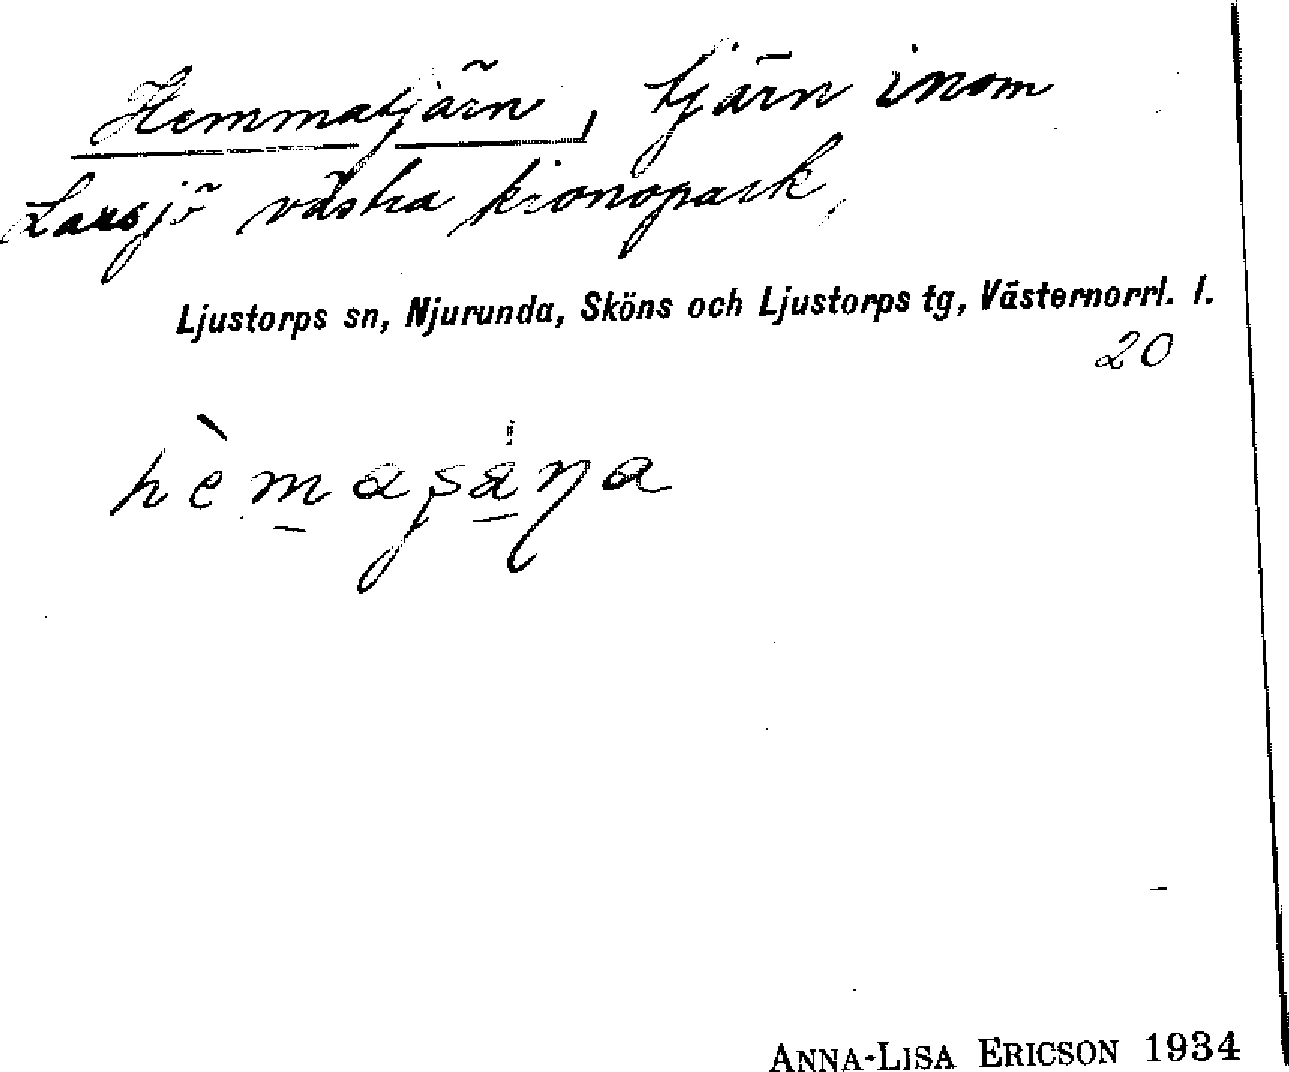 Hemmatjärn, tjärn inom
Laxsjö västra kronopark,
Ljustorps sn, Njurunda, Sköns och Ljustorps tg, Västernorrl. l.
20
ANNA-LISA ERICSON 1934